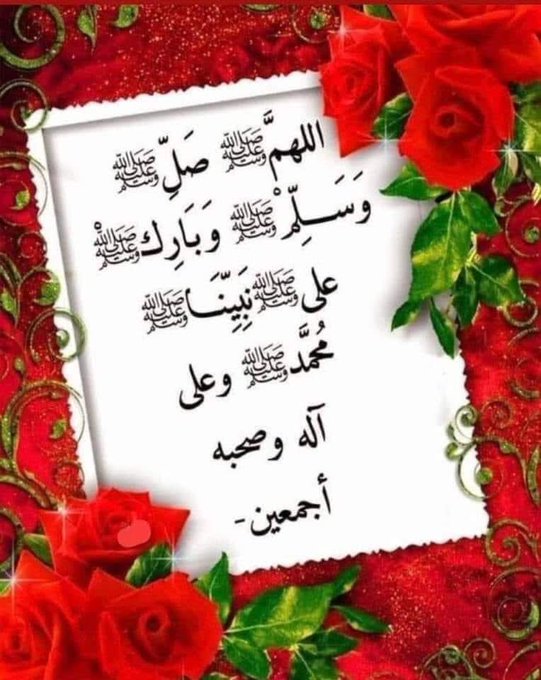 اللهمَّ ﷺ صَلِّ ﷺ
وَسَلِّمْ ﷺ وَبَارِكْ ﷺ
على ﷺ نَبِيِّنَا ﷺ
مُحمَّد ﷺ وعلى
آله وصحبه
أجمعين-